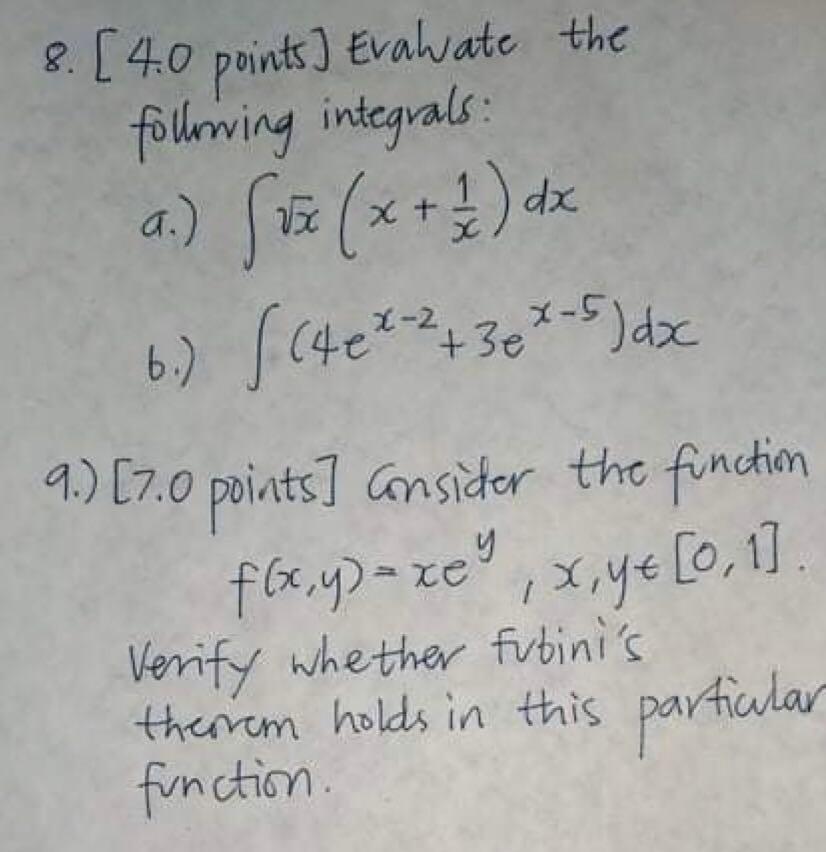 8. [4.0 points] Evaluate the
following integrals:
a.) ∫√x (x + 1/x) dx
b.) ∫(4e^{x-2} + 3e^{x-5})dx
9.) [7.0 points] Consider the function
f(x,y) = xe^y , x,y ∈ [0,1].
Verify whether fubini's
theorem holds in this particular
function.